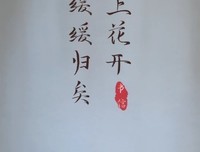 上花开
缓缓归矣